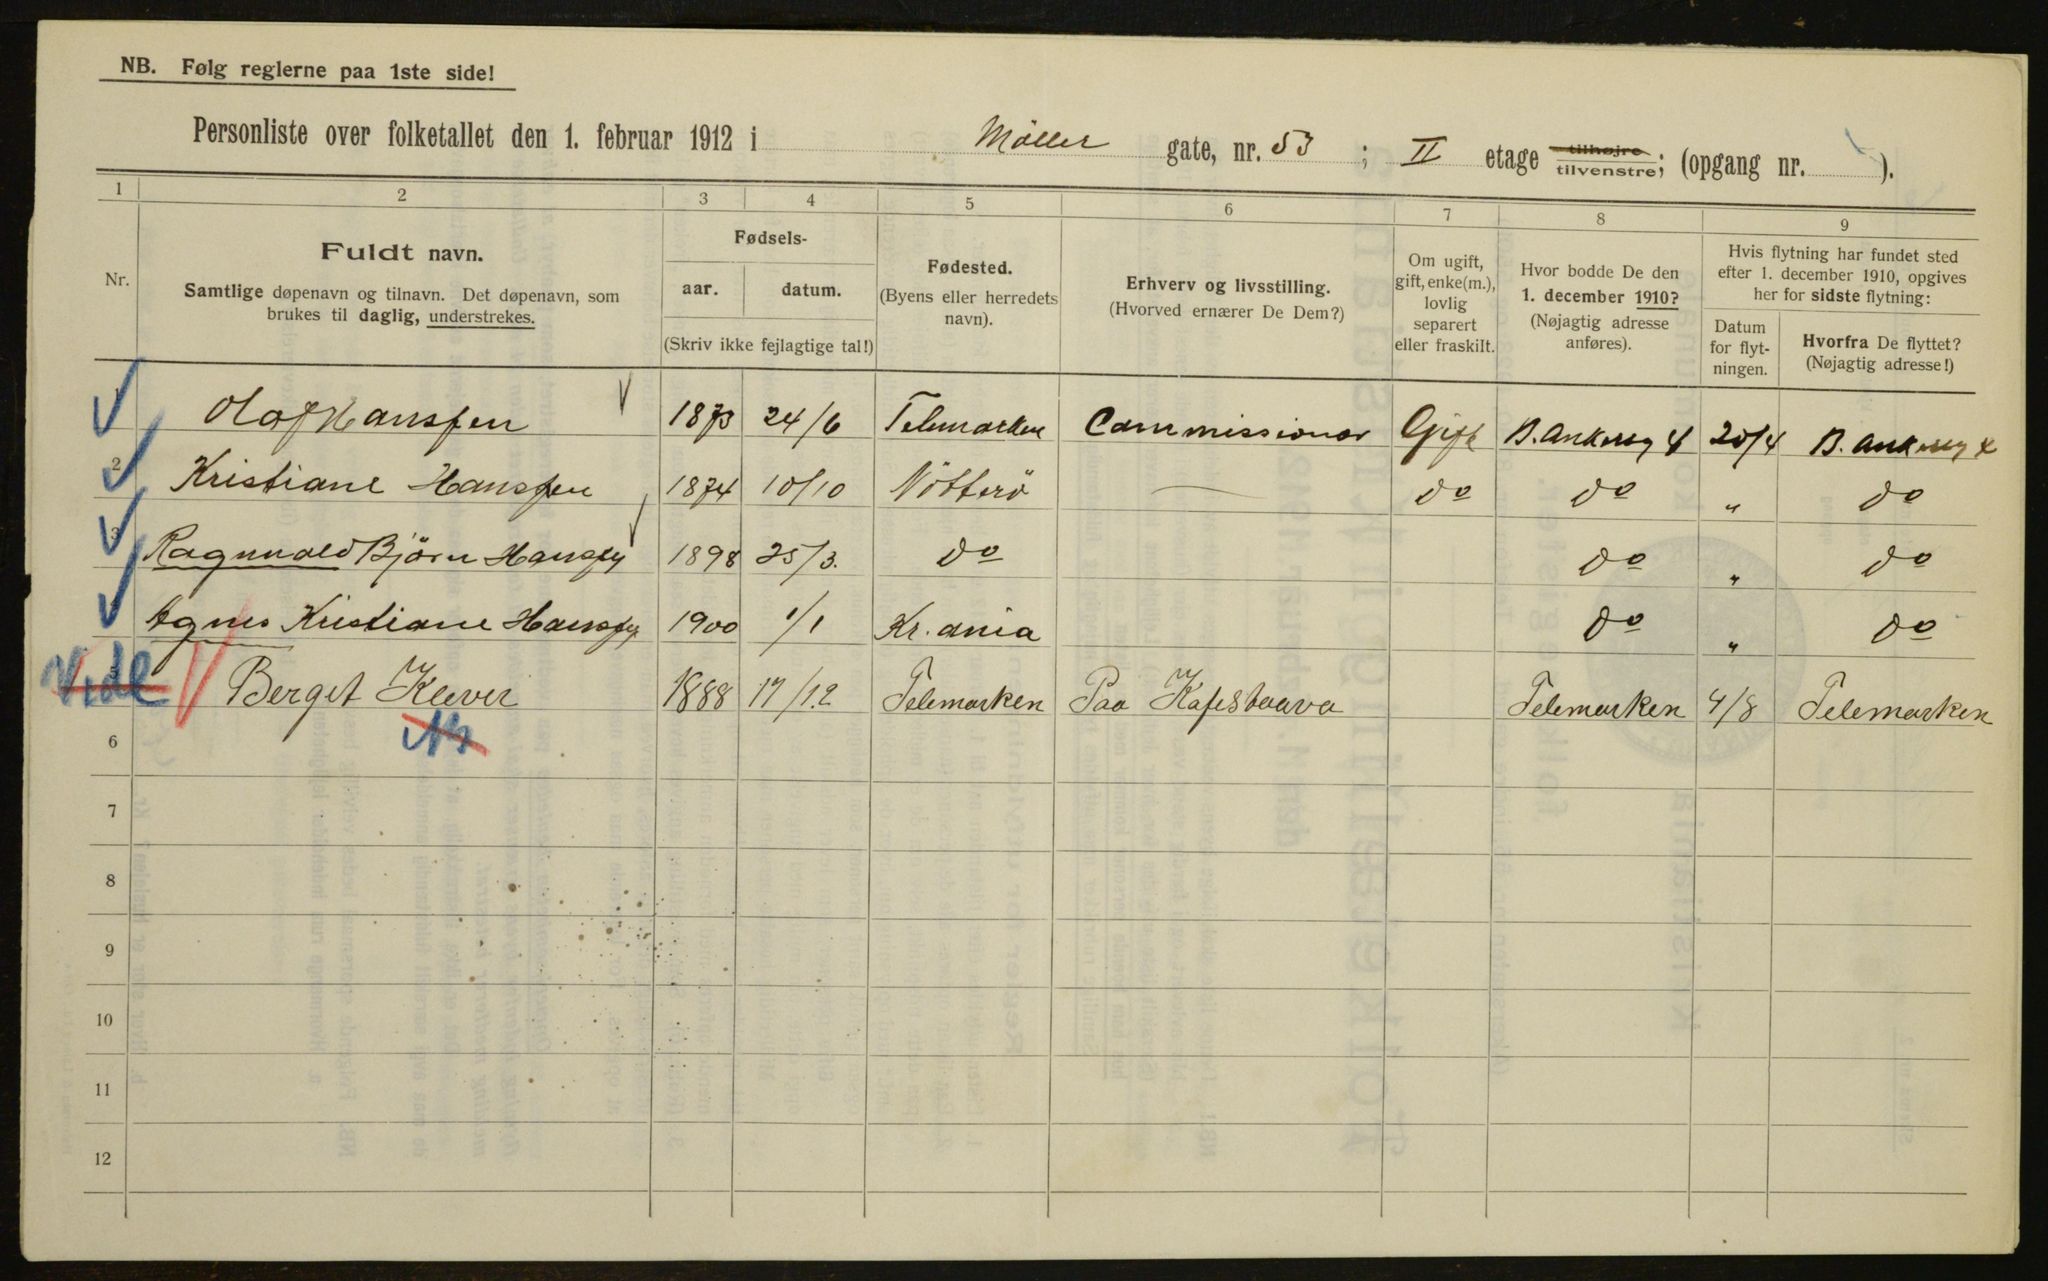 NB. Følg reglerne paa 1ste side!
Personliste over folketallet den 1. februar 1912 i Møller gate, nr. 53 ; II etage tilhøjre tilvenstre; (opgang nr. ).
1 2 3 4 5 6 7 8 9
Nr.
Fuldt navn.
Samtlige døpenavn og tilnavn. Det døpenavn, som
brukes til daglig, understrekes.
Fødsels-
aar. datum.
(Skriv ikke fejlagtige tal!)
Fødested.
(Byens eller herredets
navn).
Erhverv og livsstilling.
(Hvorved ernærer De Dem?)
Om ugift,
gift, enke(m.),
lovlig
separert
eller fraskilt.
Hvor bodde De den
1. december 1910?
(Nøjagtig adresse
anføres).
Hvis flytning har fundet sted
efter 1. december 1910, opgives
her for sidste flytning:
Datum
for flyt-
ningen.
Hvorfra De flyttet?
(Nøjagtig adresse!)
1 Olaf Hanssen 1873 24/6 Telemarken Commissionær Gift B. Ankersg 4 20/4 B. Ankersg 4
2 Kristiane Hanssen 1874 10/10 Nötterö — do do " do
3 Ragnvald Björn Hanssen 1898 25/3. do do " do
4 Agnes Kristiane Hanssen 1900 1/1 Kr.ania do " do
5 Vide Berget Klever 1888 17/12 Telemarken Paa Kafestaava Telemarken 4/8 Telemarken
6
7
8
9
10
11
12